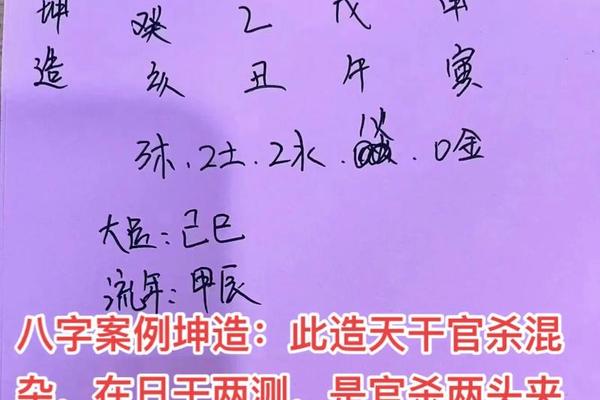 坤 癸 乙 戊 甲
造 亥 丑 午 寅
3木.2土.2水.1火.0金
大运:己巳
流年:甲辰
八字案例坤造:此造天干官杀混
杂,在日干两测,是官杀两头来